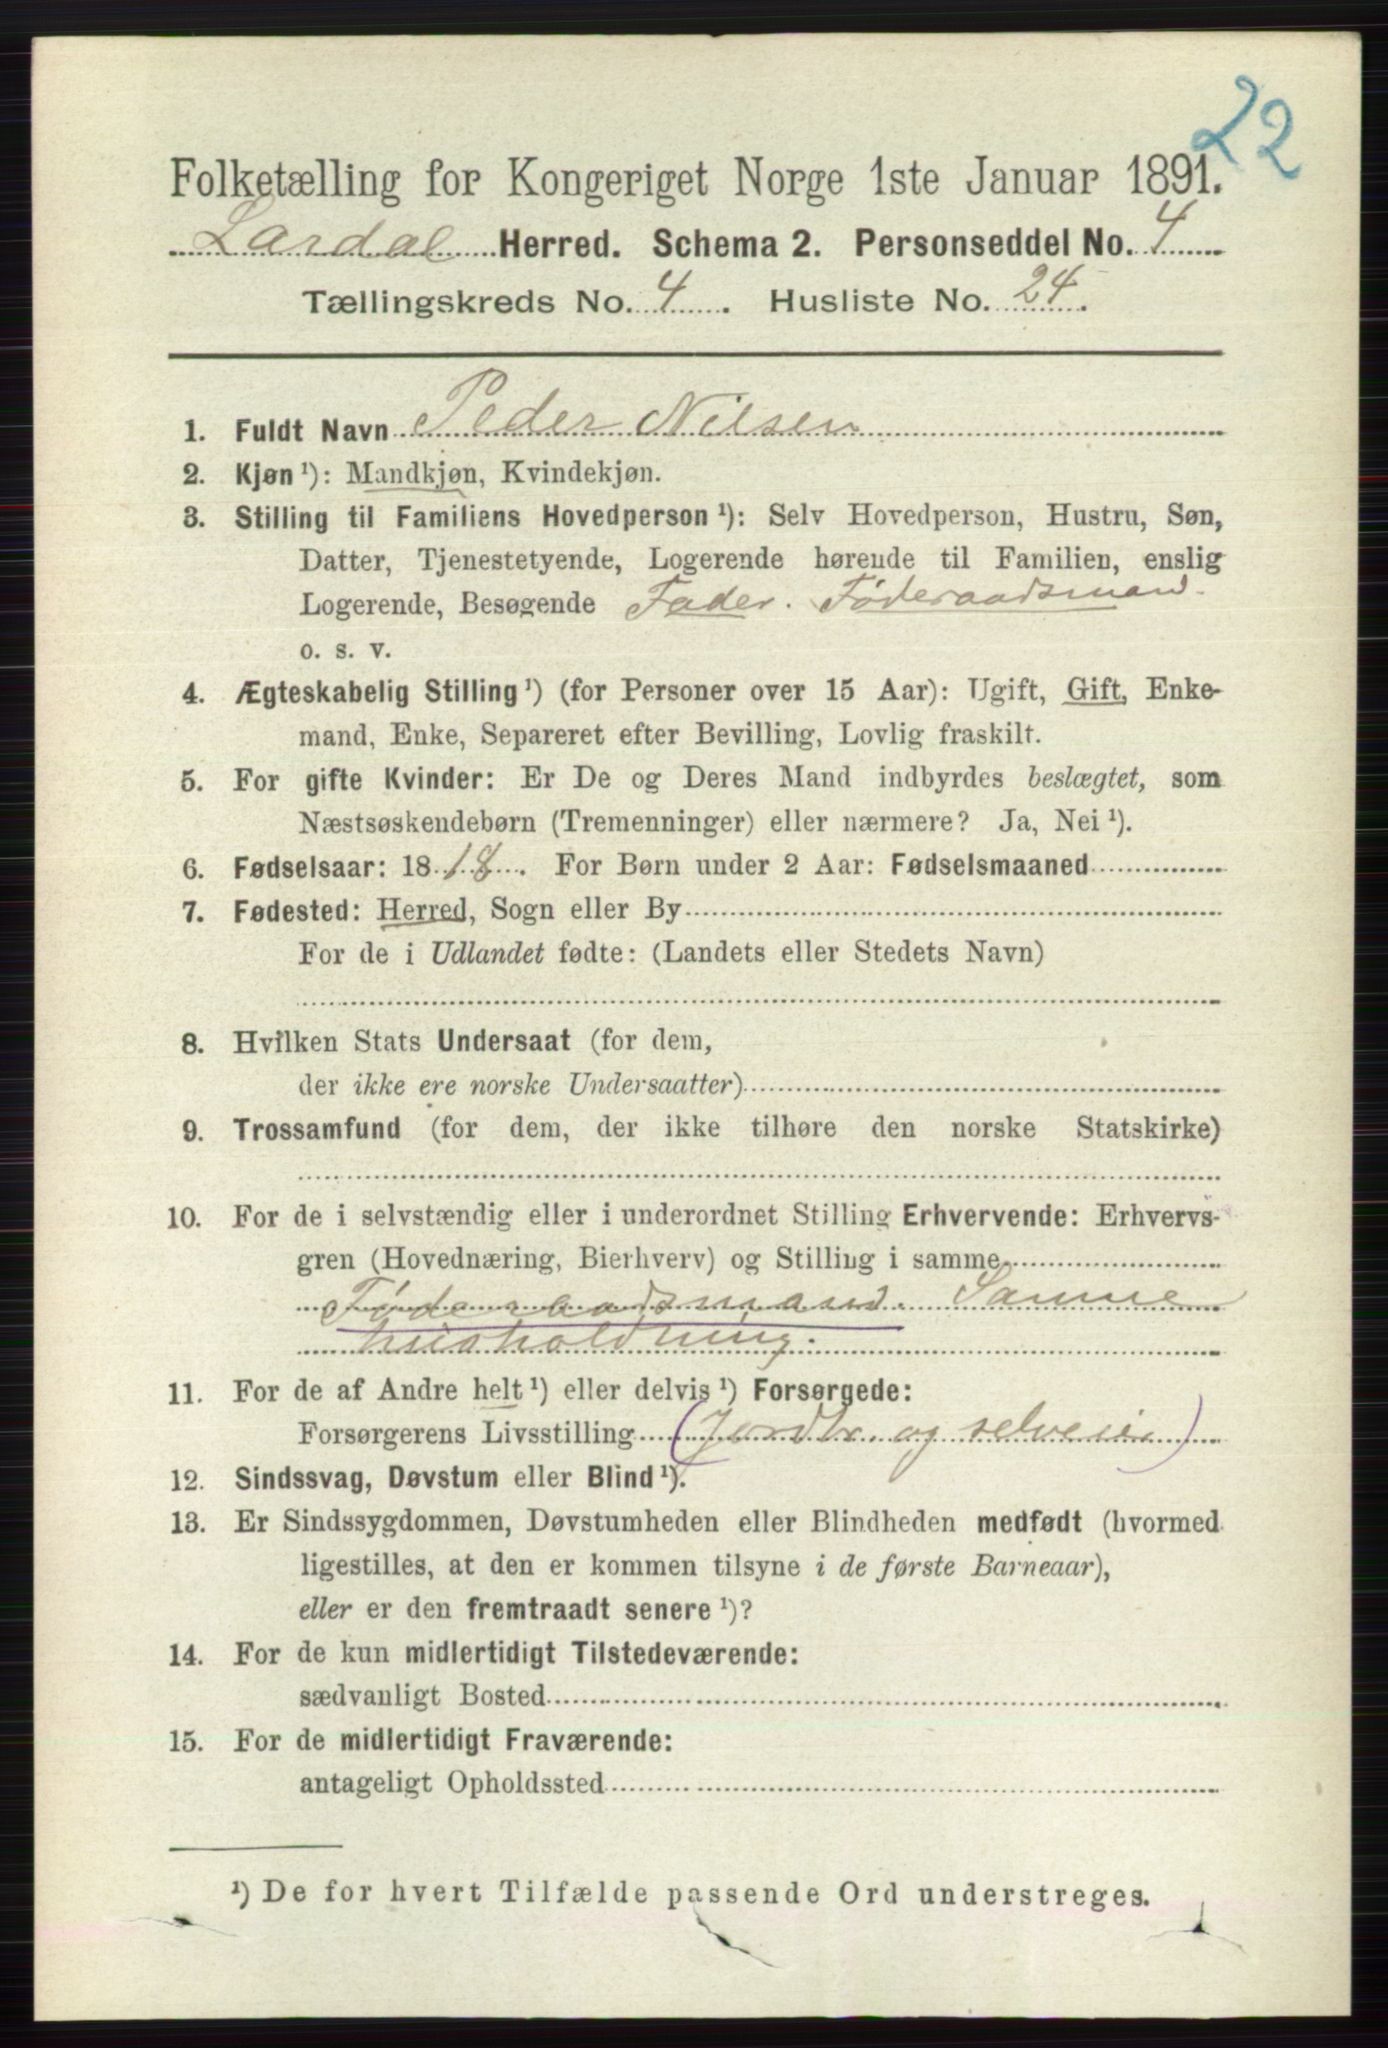 22
Folketælling for Kongeriget Norge 1ste Januar 1891.
Lardal Herred. Schema 2. Personseddel No. 4
Tællingskreds No. 4. Husliste No. 24.
1. Fuldt Navn Peder Nilsen
2. Kjøn ¹): Mandkjøn, Kvindekjøn.
3. Stilling til Familiens Hovedperson ¹): Selv Hovedperson, Hustru, Søn,
Datter, Tjenestetyende, Logerende hørende til Familien, enslig
Logerende, Besøgende Fader. Føderaadsmand.
o. s. v.
4. Ægteskabelig Stilling ¹) (for Personer over 15 Aar): Ugift, Gift, Enke-
mand, Enke, Separeret efter Bevilling, Lovlig fraskilt.
5. For gifte Kvinder: Er De og Deres Mand indbyrdes beslægtet, som
Næstsøskendebørn (Tremenninger) eller nærmere? Ja, Nei ¹).
6. Fødselsaar: 1818. For Børn under 2 Aar: Fødselsmaaned
7. Fødested: Herred, Sogn eller By
For de i Udlandet fødte: (Landets eller Stedets Navn)
8. Hvilken Stats Undersaat (for dem,
der ikke ere norske Undersaatter)
9. Trossamfund (for dem, der ikke tilhøre den norske Statskirke)
10. For de i selvstændig eller i underordnet Stilling Erhvervende: Erhvervs-
gren (Hovednæring, Bierhverv) og Stilling i samme
Føderaadsmand. Samme
husholdning.
11. For de af Andre helt ¹) eller delvis ¹) Forsørgede:
Forsørgerens Livsstilling (Jordbr. og selveier)
12. Sindssvag, Døvstum eller Blind ¹).
13. Er Sindssygdommen, Døvstumheden eller Blindheden medfødt (hvormed
ligestilles, at den er kommen tilsyne i de første Barneaar),
eller er den fremtraadt senere ¹)?
14. For de kun midlertidigt Tilstedeværende:
sædvanligt Bosted
15. For de midlertidigt Fraværende:
antageligt Opholdssted
¹) De for hvert Tilfælde passende Ord understreges.